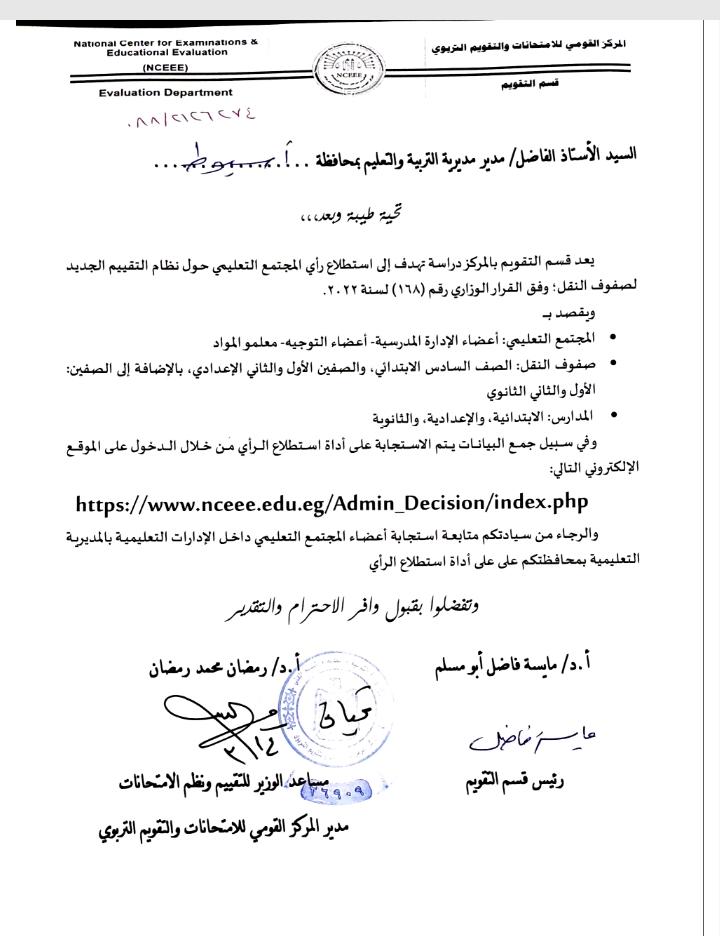 National Center for Examinations &
Educational Evaluation
(NCEEE)
Evaluation Department
المركز القومي للامتحانات والتقويم التربوي
قسم التقويم
NCEEE
٠٨٨/٢١٢٦٢٧٤
السيد الأستاذ الفاضل/ مدير مديرية التربية والتعليم بمحافظة ... أسيوط ....
تحية طيبة وبعد،،،
يعد قسم التقويم بالمركز دراسة تهدف إلى استطلاع رأي المجتمع التعليمي حول نظام التقييم الجديد
لصفوف النقل؛ وفق القرار الوزاري رقم (١٦٨) لسنة ٢٠٢٢.
ويقصد بـ
• المجتمع التعليمي: أعضاء الإدارة المدرسية- أعضاء التوجيه- معلمو المواد
• صفوف النقل: الصف السادس الابتدائي، والصفين الأول والثاني الإعدادي، بالإضافة إلى الصفين:
الأول والثاني الثانوي
• المدارس: الابتدائية، والإعدادية، والثانوية
وفي سبيل جمع البيانات يتم الاستجابة على أداة استطلاع الرأي من خلال الدخول على الموقع
الإلكتروني التالي:
https://www.nceee.edu.eg/Admin_Decision/index.php
والرجاء من سيادتكم متابعة استجابة أعضاء المجتمع التعليمي داخل الإدارات التعليمية بالمديرية
التعليمية بمحافظتكم على على أداة استطلاع الرأي
وتفضلوا بقبول وافر الاحترام والتقدير
أ.د/ مايسة فاضل أبو مسلم
أ.د/ رمضان محمد رمضان
مايسة فاضل
رئيس قسم التقويم
مساعد الوزير للتقييم ونظم الامتحانات
٣٦٩٠٩
مدير المركز القومي للامتحانات والتقويم التربوي